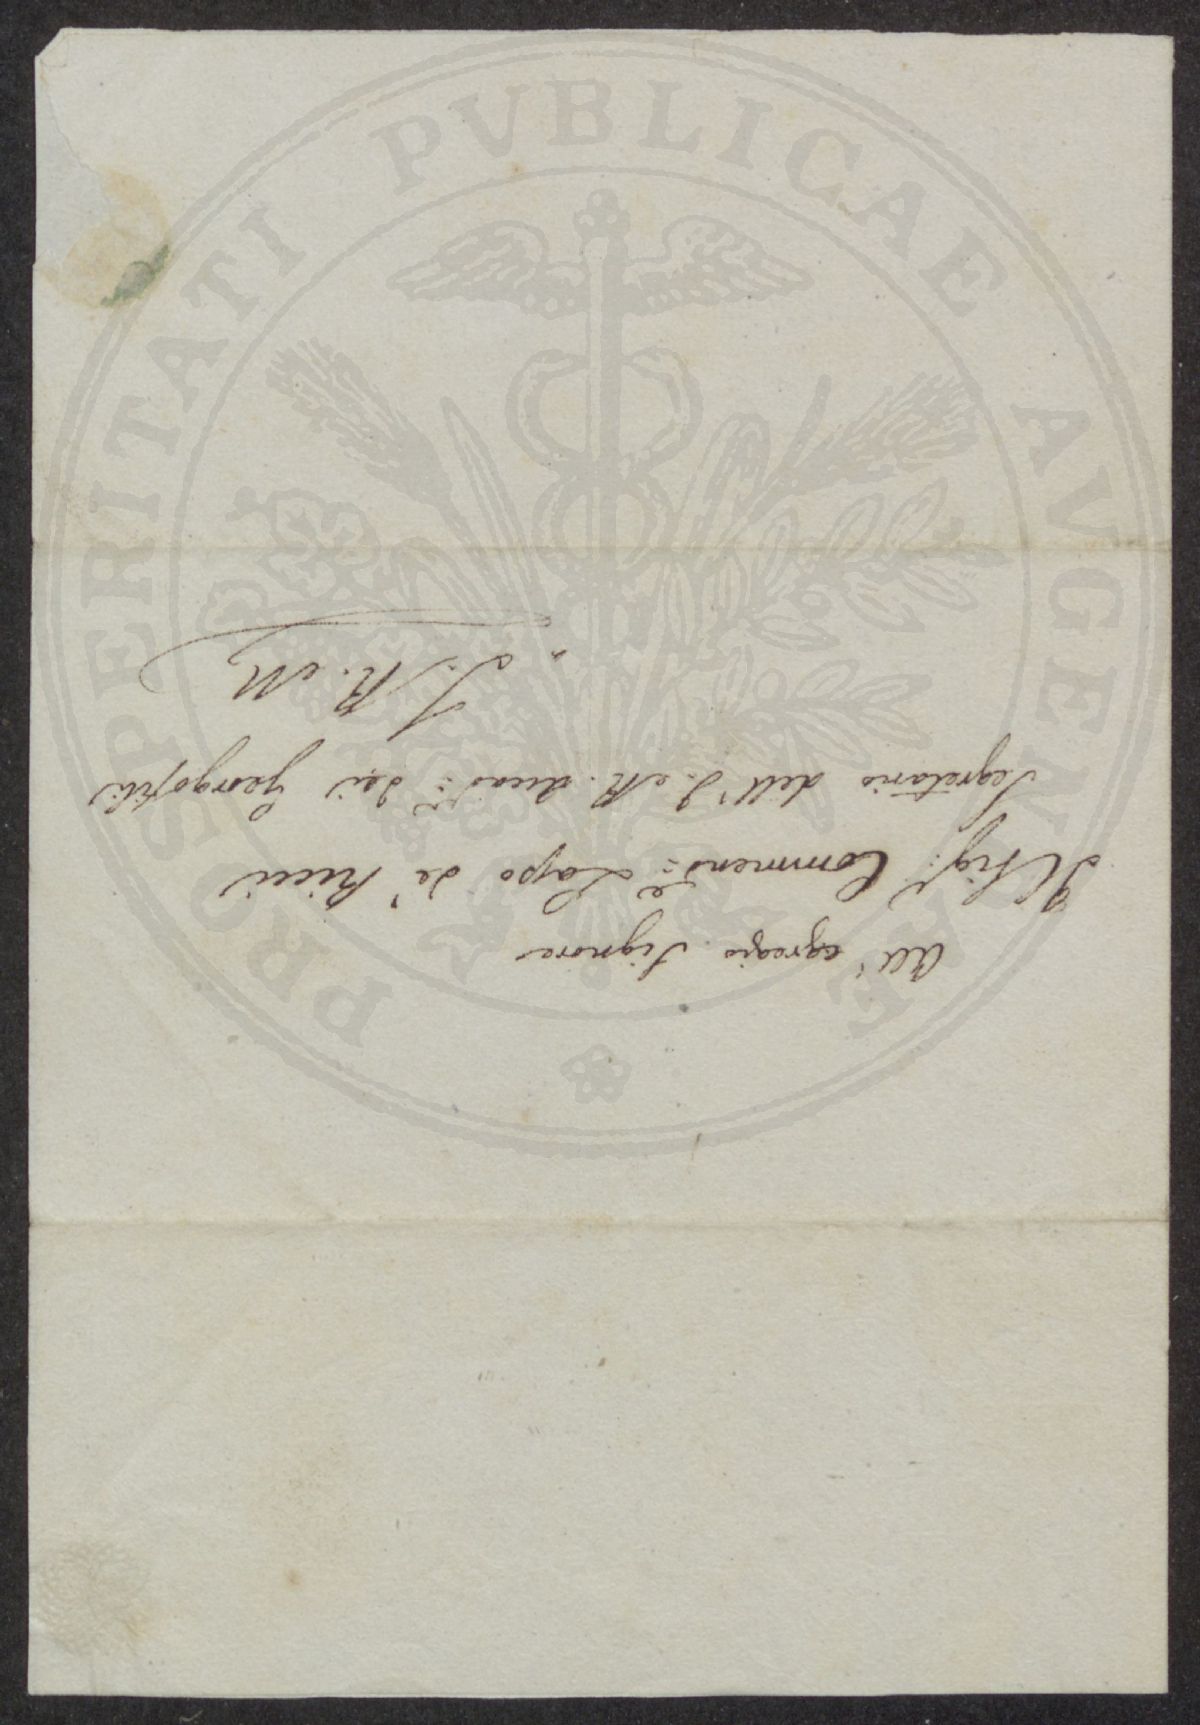 All' egregio Signore
Il Sig.r Commend.e Lapo de' Ricci
Segretario dell' I. e R. Accad.a dei Georgofili
S. R. M.
PROSPERITATI PVBLICAE AVGENDAE